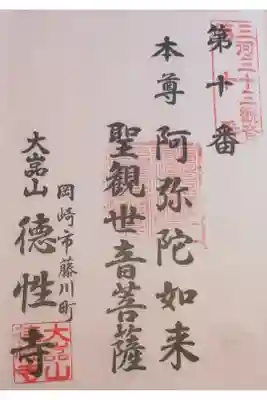 第十番
三河三十三観音
本尊 阿弥陀如来
聖観世音菩薩
岡崎市藤川町
大嵓山 徳性寺